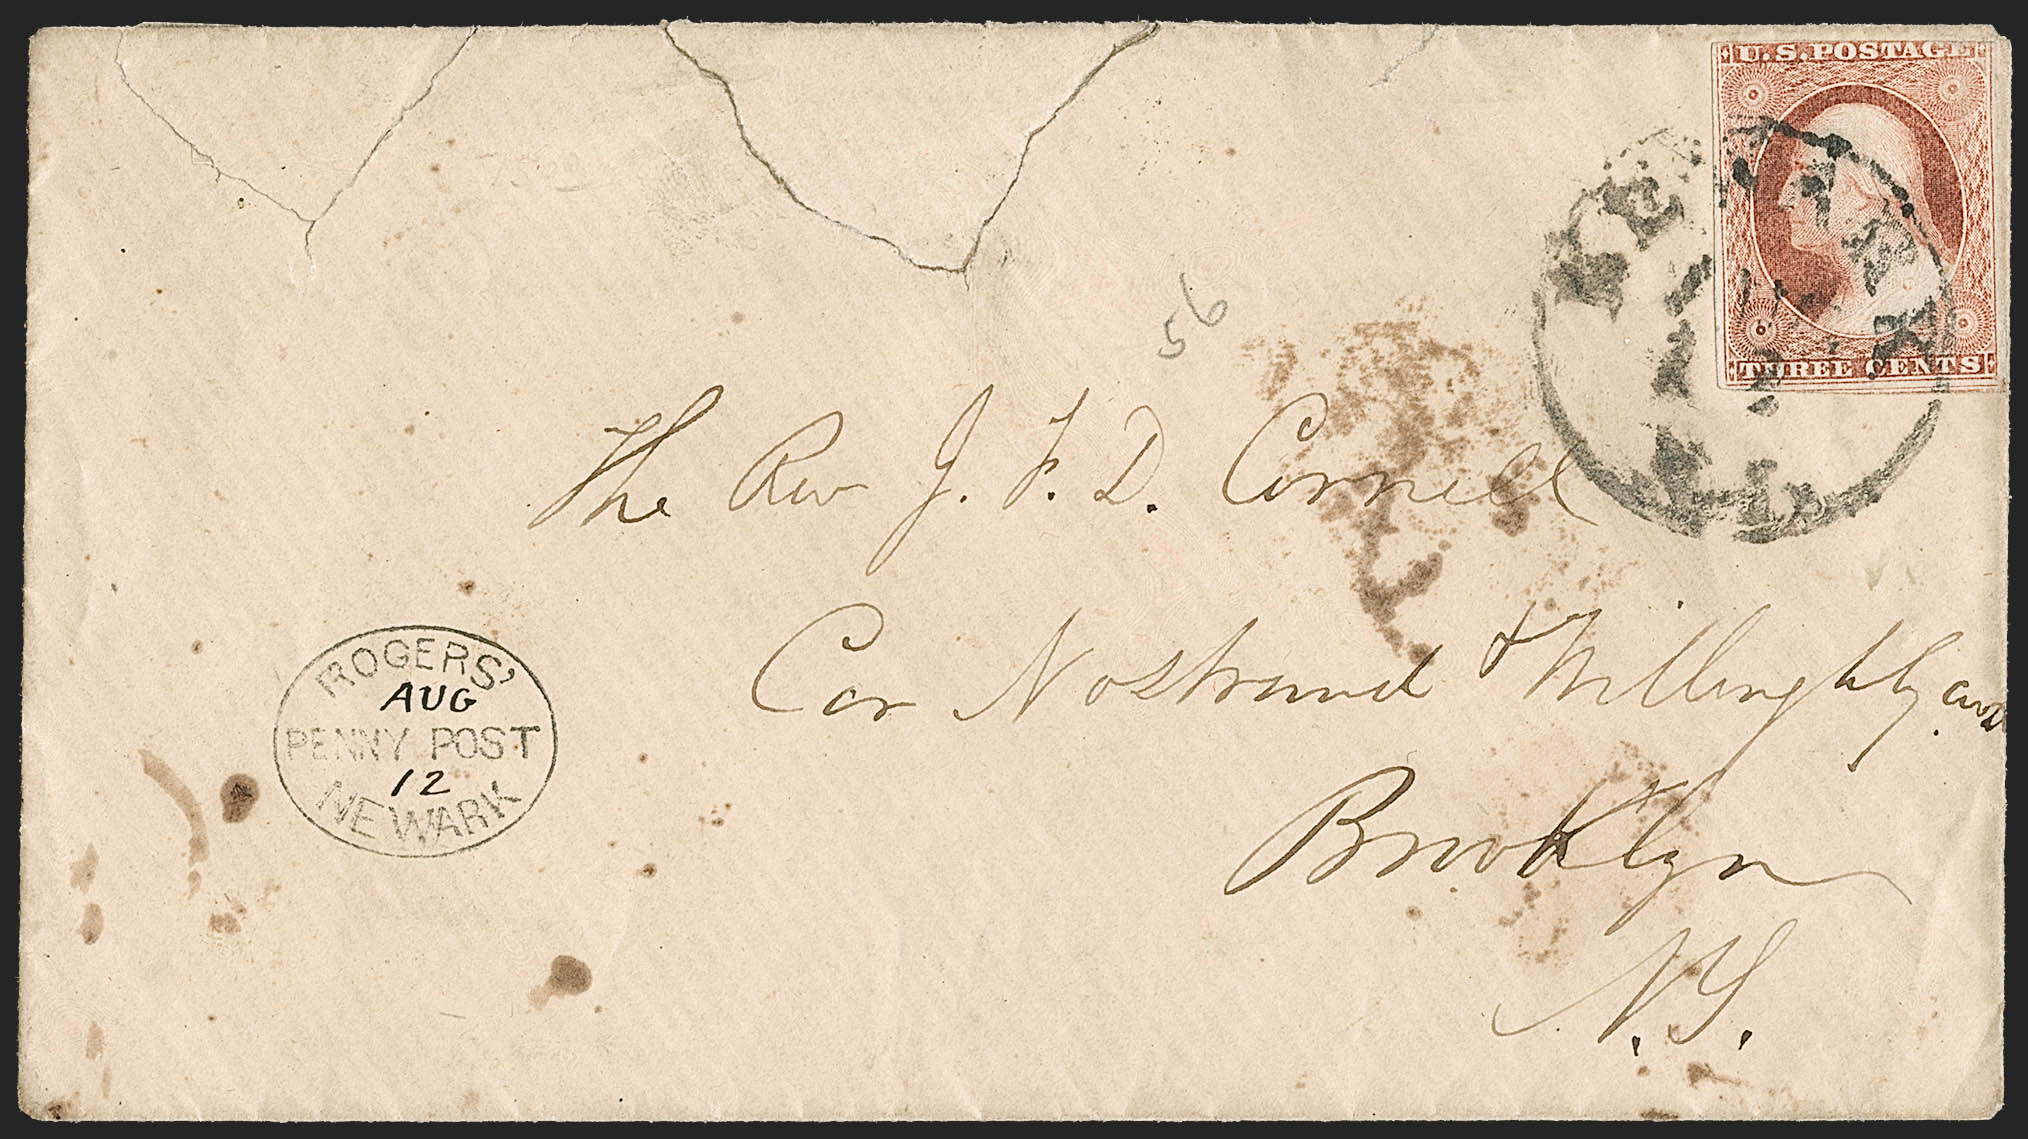 U.S. POSTAGE
THREE CENTS
NEWARK
56
The Rev J. F. D. Cornell
Cor Nostrand & Willoughby avs
Brooklyn
N.Y.
ROGERS'
AUG
PENNY POST
12
NEWARK